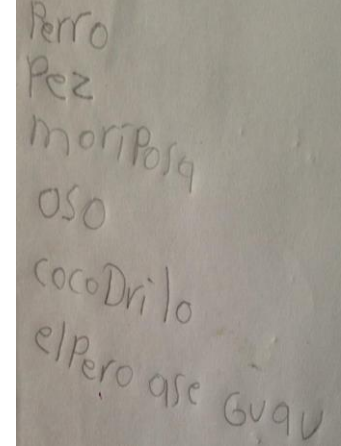 Perro
Pez
moriPosa
oso
cocoDrilo
elPero ase GuaU